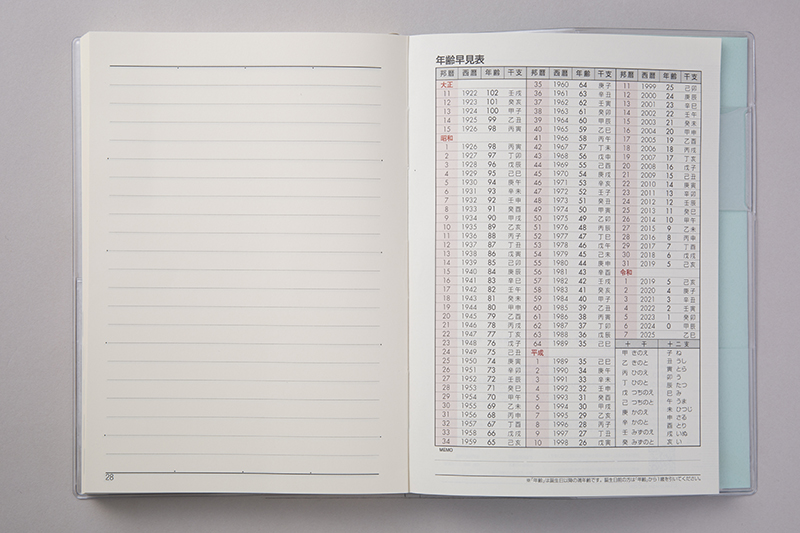 年齢早見表
邦暦 西暦 年齢 干支
大正
11 1922 102 壬戌
12 1923 101 癸亥
13 1924 100 甲子
14 1925 99 乙丑
15 1926 98 丙寅
昭和
1 1926 98 丙寅
2 1927 97 丁卯
3 1928 96 戊辰
4 1929 95 己巳
5 1930 94 庚午
6 1931 93 辛未
7 1932 92 壬申
8 1933 91 癸酉
9 1934 90 甲戌
10 1935 89 乙亥
11 1936 88 丙子
12 1937 87 丁丑
13 1938 86 戊寅
14 1939 85 己卯
15 1940 84 庚辰
16 1941 83 辛巳
17 1942 82 壬午
18 1943 81 癸未
19 1944 80 甲申
20 1945 79 乙酉
21 1946 78 丙戌
22 1947 77 丁亥
23 1948 76 戊子
24 1949 75 己丑
25 1950 74 庚寅
26 1951 73 辛卯
27 1952 72 壬辰
28 1953 71 癸巳
29 1954 70 甲午
30 1955 69 乙未
31 1956 68 丙申
32 1957 67 丁酉
33 1958 66 戊戌
34 1959 65 己亥
邦暦 西暦 年齢 干支
35 1960 64 庚子
36 1961 63 辛丑
37 1962 62 壬寅
38 1963 61 癸卯
39 1964 60 甲辰
40 1965 59 乙巳
41 1966 58 丙午
42 1967 57 丁未
43 1968 56 戊申
44 1969 55 己酉
45 1970 54 庚戌
46 1971 53 辛亥
47 1972 52 壬子
48 1973 51 癸丑
49 1974 50 甲寅
50 1975 49 乙卯
51 1976 48 丙辰
52 1977 47 丁巳
53 1978 46 戊午
54 1979 45 己未
55 1980 44 庚申
56 1981 43 辛酉
57 1982 42 壬戌
58 1983 41 癸亥
59 1984 40 甲子
60 1985 39 乙丑
61 1986 38 丙寅
62 1987 37 丁卯
63 1988 36 戊辰
64 1989 35 己巳
平成
1 1989 35 己巳
2 1990 34 庚午
3 1991 33 辛未
4 1992 32 壬申
5 1993 31 癸酉
6 1994 30 甲戌
7 1995 29 乙亥
8 1996 28 丙子
9 1997 27 丁丑
10 1998 26 戊寅
邦暦 西暦 年齢 干支
11 1999 25 己卯
12 2000 24 庚辰
13 2001 23 辛巳
14 2002 22 壬午
15 2003 21 癸未
16 2004 20 甲申
17 2005 19 乙酉
18 2006 18 丙戌
19 2007 17 丁亥
20 2008 16 戊子
21 2009 15 己丑
22 2010 14 庚寅
23 2011 13 辛卯
24 2012 12 壬辰
25 2013 11 癸巳
26 2014 10 甲午
27 2015 9 乙未
28 2016 8 丙申
29 2017 7 丁酉
30 2018 6 戊戌
31 2019 5 己亥
令和
1 2019 5 己亥
2 2020 4 庚子
3 2021 3 辛丑
4 2022 2 壬寅
5 2023 1 癸卯
6 2024 0 甲辰
7 2025 乙巳
十干
甲 きのえ
乙 きのと
丙 ひのえ
丁 ひのと
戊 つちのえ
己 つちのと
庚 かのえ
辛 かのと
壬 みずのえ
癸 みずのと
十二支
子 ね
丑 うし
寅 とら
卯 う
辰 たつ
巳 み
午 うま
未 ひつじ
申 さる
酉 とり
戌 いぬ
亥 い
MEMO
※「年齢」は誕生日以降の満年齢です。誕生日前の方は「年齢」から1歳を引いてください。
28